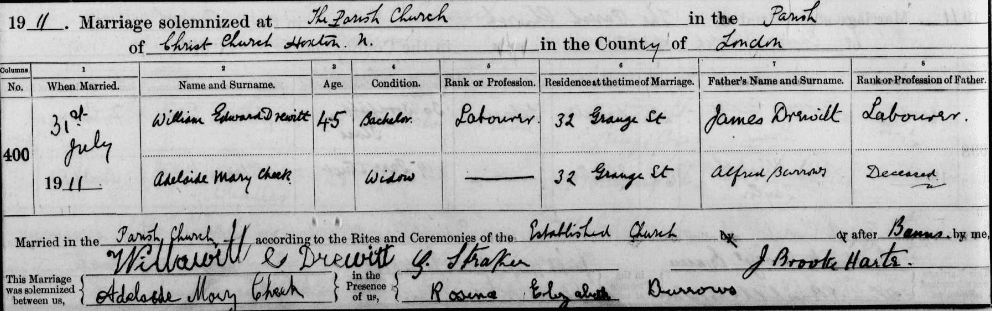 1911. Marriage solemnized at The Parish Church in the Parish
of Christ Church Hoxton. N. in the County of London
Columns 1 2 3 4 5 6 7 8
No. When Married. Name and Surname. Age. Condition. Rank or Profession. Residence at the time of Marriage. Father's Name and Surname. Rank or Profession of Father.
400 31st July 1911 William Edward Drewitt 45 Bachelor Labourer. 32 Grange St James Drewitt Labourer.
Adelaide Mary Cheek Widow 32 Grange St Alfred Burrows Deceased
Married in the Parish Church according to the Rites and Ceremonies of the Established Church or after Banns by me,
E Drewitt G. Straker J Brooke
This Marriage was solemnized between us, Adelaide Mary Cheek in the Presence of us, Rosina Elizabeth Burrows